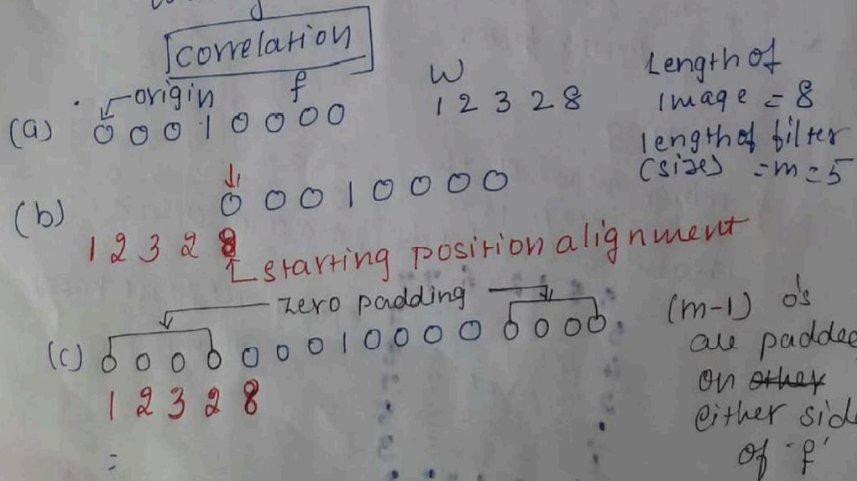 correlation
origin f
(a) 0 0 0 1 0 0 0 0
W
1 2 3 2 8
Length of
image = 8
length of filter
(size) = m = 5
(b) 0 0 0 1 0 0 0 0
1 2 3 2 8
starting position alignment
zero padding
(c) 0 0 0 0 0 0 0 1 0 0 0 0 0 0 0 0
1 2 3 2 8
=
(m-1) 0's
are padded
on other
either side
of 'f'